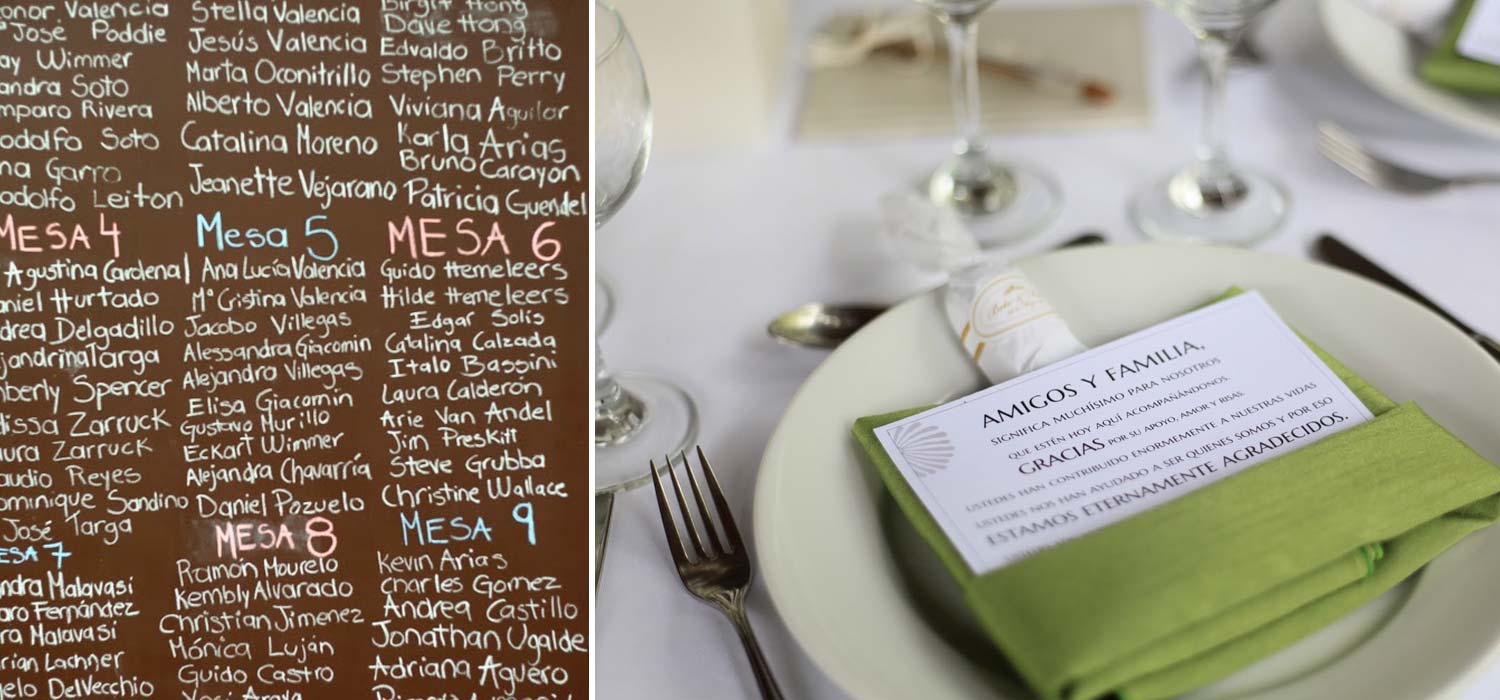 onor Valencia
José Poddie
ay Wimmer
andra Soto
mparo Rivera
odolfo Soto
na Garro
odolfo Leiton
MESA 4
Agustina Cardenal
niel Hurtado
drea Delgadillo
jandrina Targa
berly Spencer
lissa Zarruck
ura Zarruck
audio Reyes
ominique Sandino
José Targa
ESA 7
ndra Malavasi
aro Fernández
ra Malavasi
rian Lachner
elo DelVecchio
Stella Valencia
Jesús Valencia
Marta Oconitrillo
Alberto Valencia
Catalina Moreno
Jeanette Vejarano
Mesa 5
Ana Lucía Valencia
Mª Cristina Valencia
Jacobo Villegas
Alessandra Giacomin
Alejandra Villegas
Elisa Giacomin
Gustavo Murillo
Eckart Wimmer
Alejandra Chavarría
Daniel Pozuelo
MESA 8
Ramón Mourelo
Kembly Alvarado
Christian Jimenez
Mónica Luján
Guido Castro
Birgit Hong
Dave Hong
Edvaldo Britto
Stephen Perry
Viviana Aguilar
Karla Arias
Bruno Carayon
Patricia Guendel
MESA 6
Guido Hemeleers
Hilde Hemeleers
Edgar Solis
Catalina Calzada
Italo Bassini
Laura Calderón
Arie Van Andel
Jim Preskitt
Steve Grubba
Christine Wallace
MESA 9
Kevin Arias
charles Gomez
Andrea Castillo
Jonathan Ugalde
Adriana Aguero
AMIGOS Y FAMILIA,
SIGNIFICA MUCHÍSIMO PARA NOSOTROS
QUE ESTÉN HOY AQUÍ ACOMPAÑÁNDONOS.
GRACIAS POR SU APOYO, AMOR Y RISAS.
USTEDES HAN CONTRIBUIDO ENORMEMENTE A NUESTRAS VIDAS
USTEDES NOS HAN AYUDADO A SER QUIENES SOMOS Y POR ESO
ESTAMOS ETERNAMENTE AGRADECIDOS.